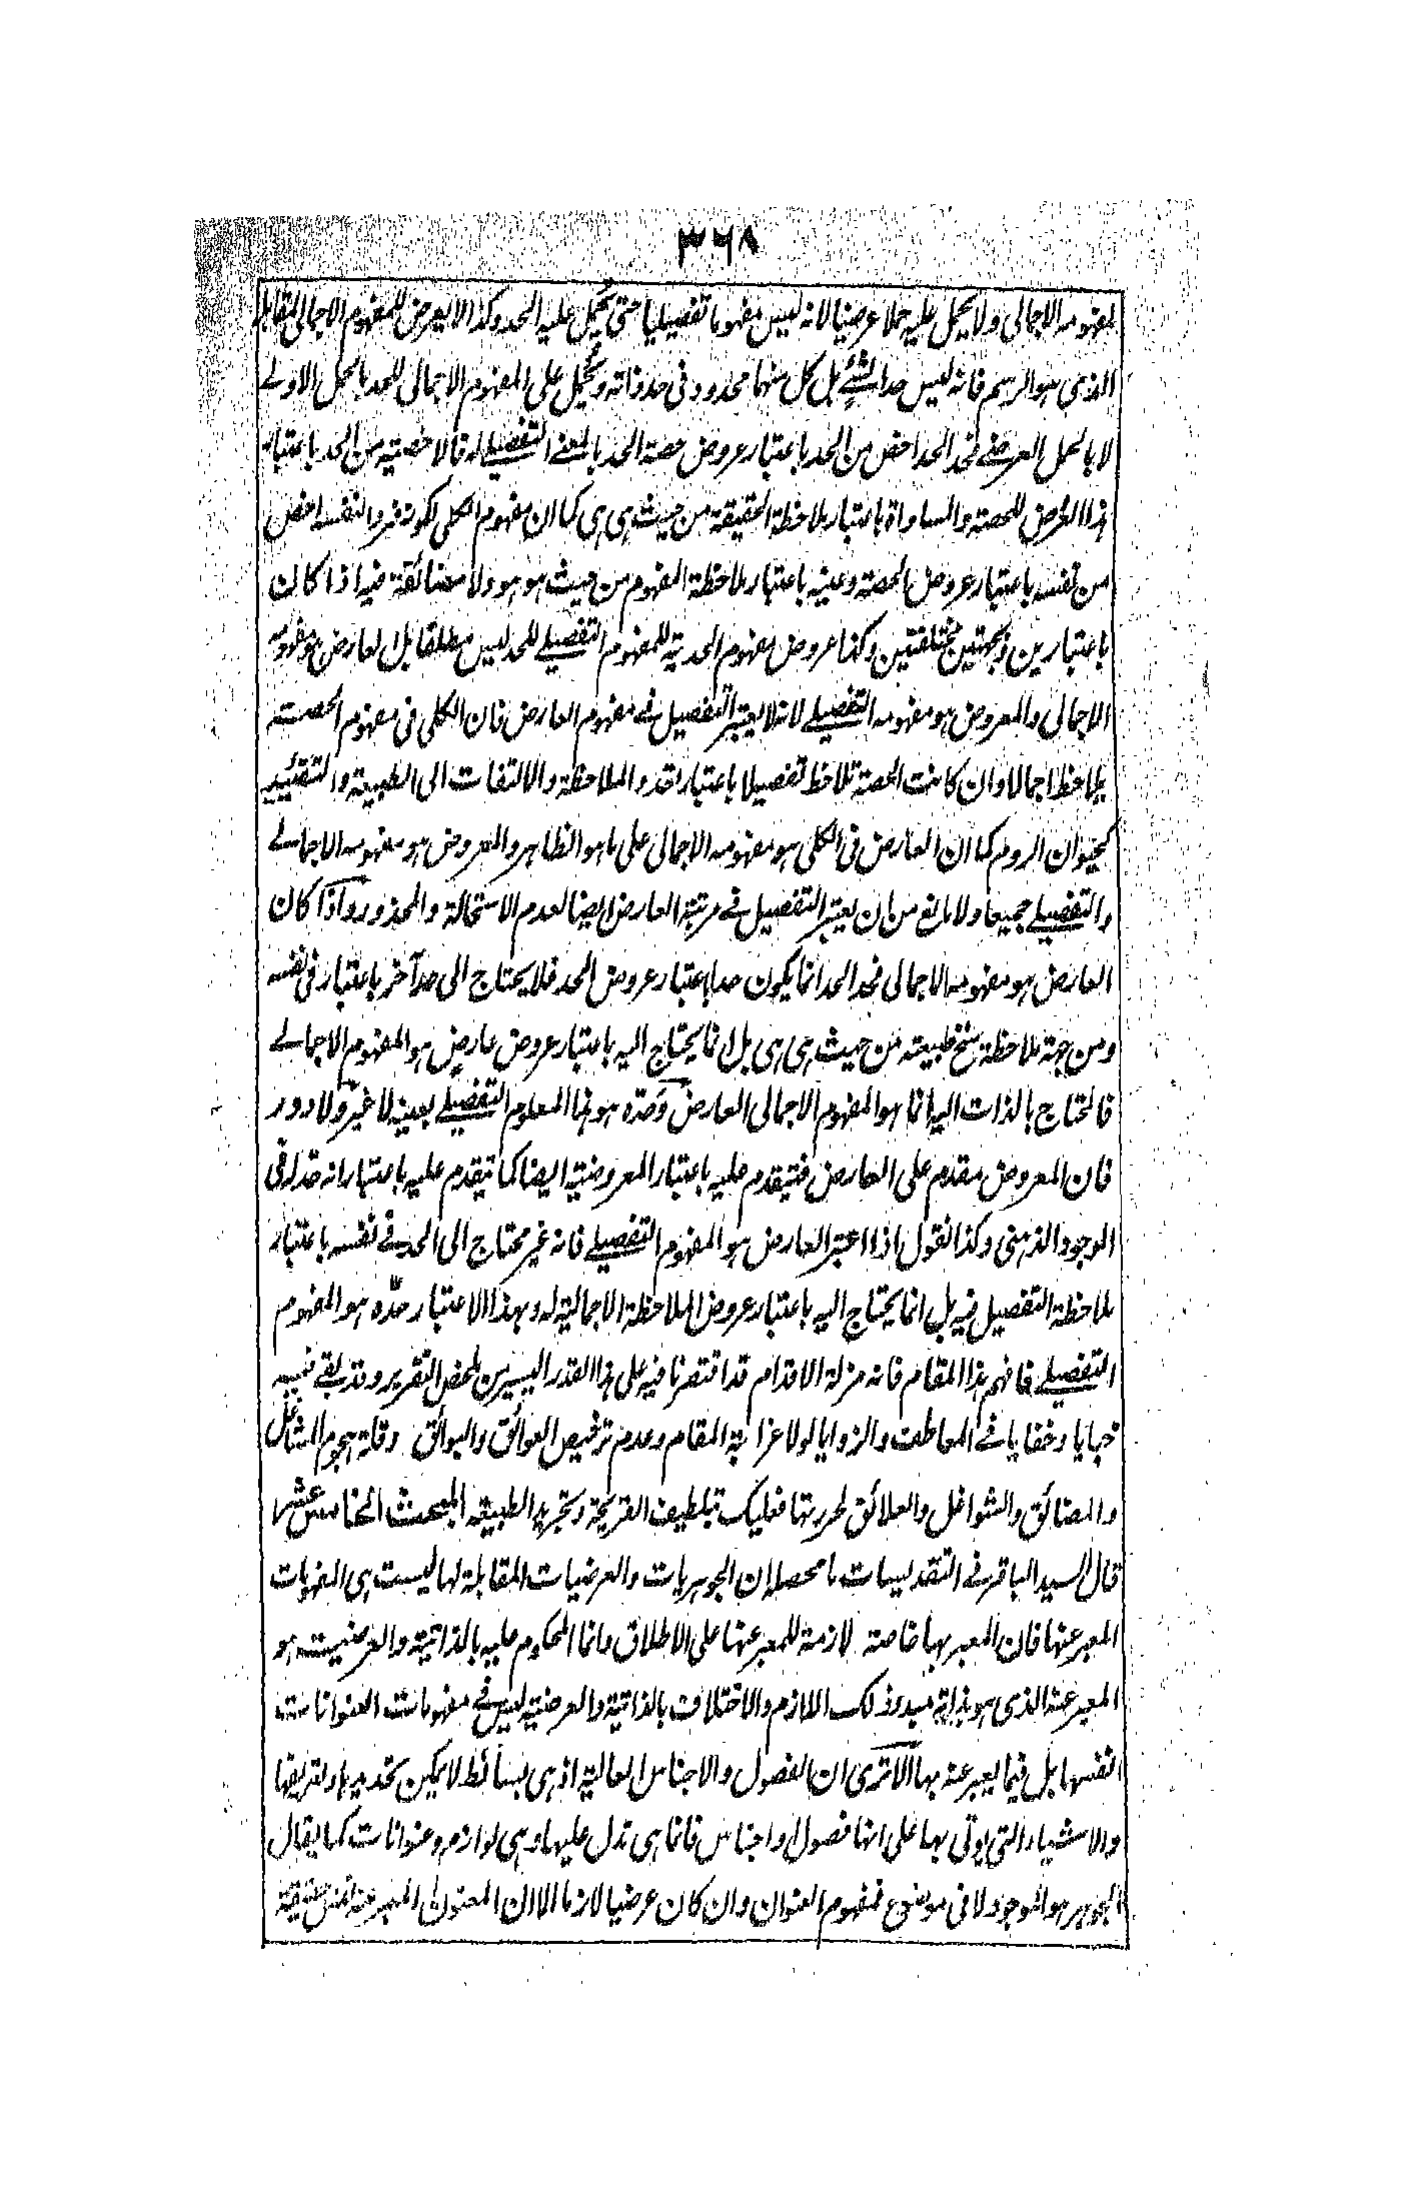 ٣٦٨
لمفهومه الاجمالى ولا يحمل عليه حملا عرضيا لانه ليس مفهوما تفصيليا حتى يحمل عليه الحد وكذا لا يعرض للمفهوم الاجمالى المقابل
الذى هو الرسم فانه ليس حدا لشئ بل كل منهما محدود فى حد ذاته ويحمل على المفهوم الاجمالى للحد بالحمل الاولى
لا بالحمل العرضى فحد الحد اخص من الحد باعتبار عروض حصة الحد بالمعنى التفصيلى له فالاخصية من الحد باعتبار
هذا العرض للحصة والمساواة باعتبار ملاحظة الحقيقة من حيث هى هى كما ان مفهوم الكلى لكونه فردا لنفسه اخص
من نفسه باعتبار عروض الحصة وعينه باعتبار ملاحظة المفهوم من حيث هو هو ولا مضائقة فيه اذا كان
باعتبارين وبجهتين مختلفتين وكذا عروض مفهوم الحدية للمفهوم التفصيلى للحد ليس مطلقا بل العارض هو مفهومه
الاجمالى والمعروض هو مفهومه التفصيلى لانه لا يعتبر التفصيل فى مفهوم العارض فان الكلى فى مفهوم الحصة
يلاحظ اجمالا وان كانت الحصة تلاحظ تفصيلا باعتبار تعدد الملاحظة والالتفات الى الطبيعة والتقئيد
كحيوان الروم كما ان العارض فى الكلى هو مفهومه الاجمالى على ما هو الظاهر والمعروض هو مفهومه الاجمالى
والتفصيلى جميعا ولا مانع من ان يعتبر التفصيل فى مرتبة العارض ايضا لعدم الاستحالة والمحذور واذا كان
العارض هو مفهومه الاجمالى فحد الحد انما يكون حدا باعتبار عروض الحد فلا يحتاج الى حد آخر باعتبار فى نفسه
ومن جهة ملاحظة سنخ طبيعته من حيث هى هى بل انما يحتاج اليه باعتبار عروض عارض هو المفهوم الاجمالى
فالمحتاج بالذات اليه انما هو المفهوم الاجمالى العارض وحده هو هذا المعلوم التفصيلى بعينه لا غير ولا دور
فان المعروض مقدم على العارض فيتقدم عليه باعتبار المعروضية ايضا كما يتقدم عليه باعتبار انه حد له فى
الوجود الذهنى وكذا نقول اذا اعتبر العارض هو المفهوم التفصيلى فانه غير محتاج الى الحد فى نفسه باعتبار
ملاحظة التفصيل فيه بل انما يحتاج اليه باعتبار عروض الملاحظة الاجمالية له وبهذا الاعتبار حده هو المفهوم
التفصيلى فافهم هذا المقام فانه مزلة الاقدام قد اقتصرنا فيه على هذا القدر اليسير من ملخص التقرير وقد بقى فيه
خبايا وخفايا فى المعاطف والزوايا لولا غرابة المقام وعدم ترخيص العوائق والبوائق وقلة هجوم المشاغل
والمضائق والشواغل والعلائق لحررتها فعليك بتلطيف القريحة وتجريد الطبيعة المبحث الخامس عشر
قال السيد الباقر فى التقديسات ما محصله ان الجوهريات والعرضيات المقابلة لها ليست هى المفهومات
المعبر عنها فان المعبر بها خاصة لازمة للمعبر عنها على الاطلاق وانما المحكوم عليه بالذاتية والعرضية هو
المعبر عنه الذى هو بذاته مبدء ذلك اللازم والاختلاف بالذاتية والعرضية ليس فى مفهومات العنوانات
انفسها بل فيما يعبر عنه بها الا ترى ان الفصول والاجناس العالية اذ هى بسائط لا يمكن تحديدها وتعريفها
والاشياء التى يوتى بها على انها فصول واجناس فانما هى تدل عليها وهى لوازم وعنوانات كما يقال
الجوهر هو الموجود لا فى موضوع فمفهوم العنوان وان كان عرضيا لازما الا ان المعنون المعبر عنه نفس حقيقة